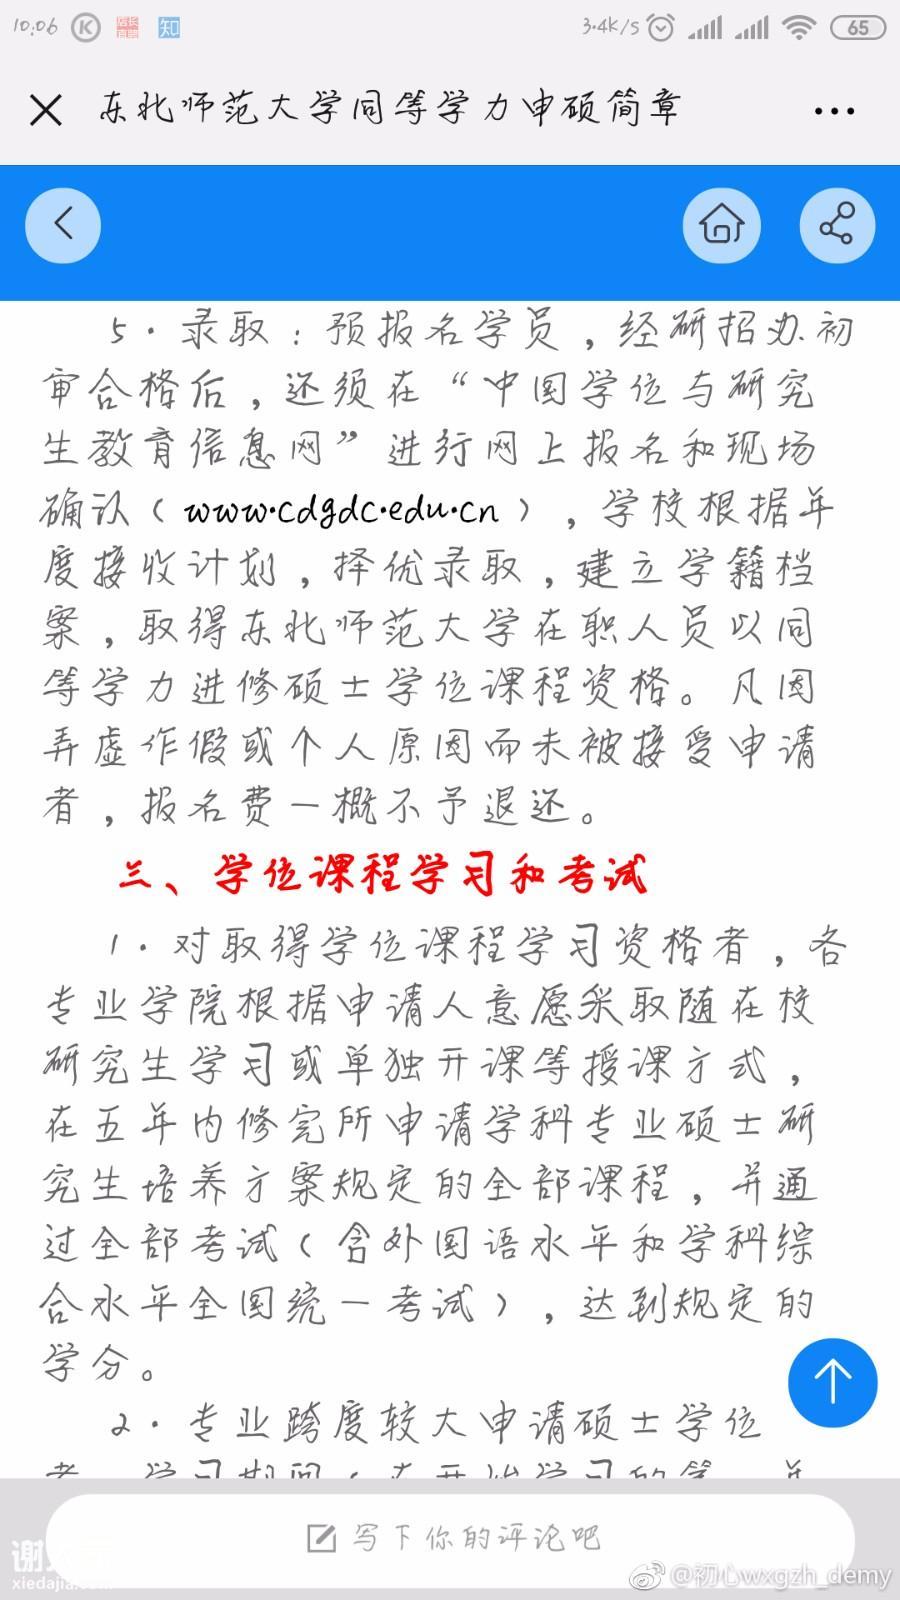 10:06
店长
直聘
知
3.4K/S
65
东北师范大学同等学力申硕简章
5.录取：预报名学员，经研招办初
审合格后，还须在“中国学位与研究
生教育信息网”进行网上报名和现场
确认（www.cdgdc.edu.cn），学校根据年
度接收计划，择优录取，建立学籍档
案，取得东北师范大学在职人员以同
等学力进修硕士学位课程资格。凡因
弄虚作假或个人原因而未被接受申请
者，报名费一概不予退还。
三、学位课程学习和考试
1.对取得学位课程学习资格者，各
专业学院根据申请人意愿采取随在校
研究生学习或单独开课等授课方式，
在五年内修完所申请学科专业硕士研
究生培养方案规定的全部课程，并通
过全部考试（含外国语水平和学科综
合水平全国统一考试），达到规定的
学分。
2.专业跨度较大申请硕士学位
写下你的评论吧
xiedajia.com
@初心wxgzh_demy